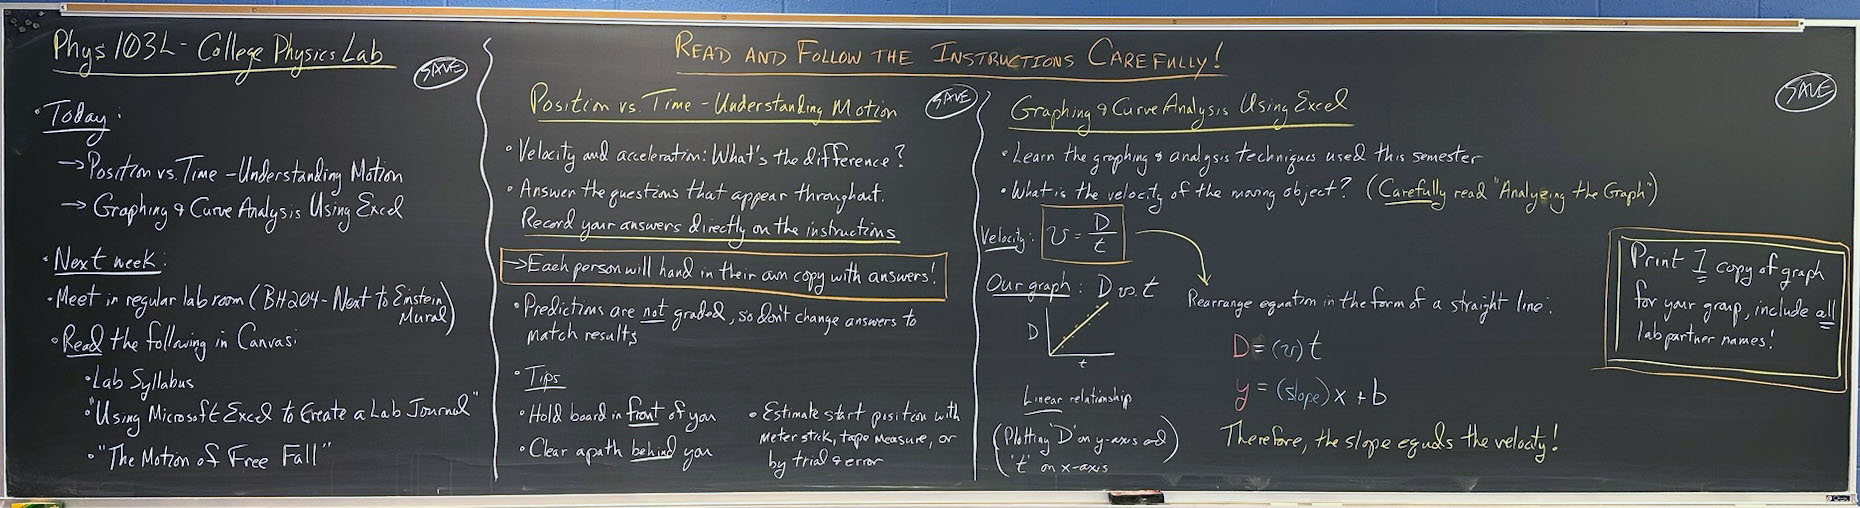 Phys 103L - College Physics Lab
SAVE
• Today:
→ Position vs. Time - Understanding Motion
→ Graphing & Curve Analysis Using Excel
• Next week:
• Meet in regular lab room (BH204 - Next to Einstein Mural)
• Read the following in Canvas:
• Lab Syllabus
• "Using Microsoft Excel to Create a Lab Journal"
• "The Motion of Free Fall"
READ AND FOLLOW THE INSTRUCTIONS CAREFULLY!
Position vs. Time - Understanding Motion
SAVE
• Velocity and acceleration: What's the difference?
• Answer the questions that appear throughout.
Record your answers directly on the instructions
→ Each person will hand in their own copy with answers!
• Predictions are not graded, so don't change answers to
match results
• Tips
• Hold board in front of you
• Clear a path behind you
• Estimate start position with
meter stick, tape measure, or
by trial & error
Graphing & Curve Analysis Using Excel
SAVE
• Learn the graphing & analysis techniques used this semester
• What is the velocity of the moving object? (Carefully read "Analyzing the Graph")
Velocity: v = D/t
Our graph: D vs. t
D
t
Linear relationship
(Plotting 'D' on y-axis and
't' on x-axis)
Rearrange equation in the form of a straight line:
D = (v) t
y = (slope) x + b
Therefore, the slope equals the velocity!
Print 1 copy of graph
for your group, include all
lab partner names!